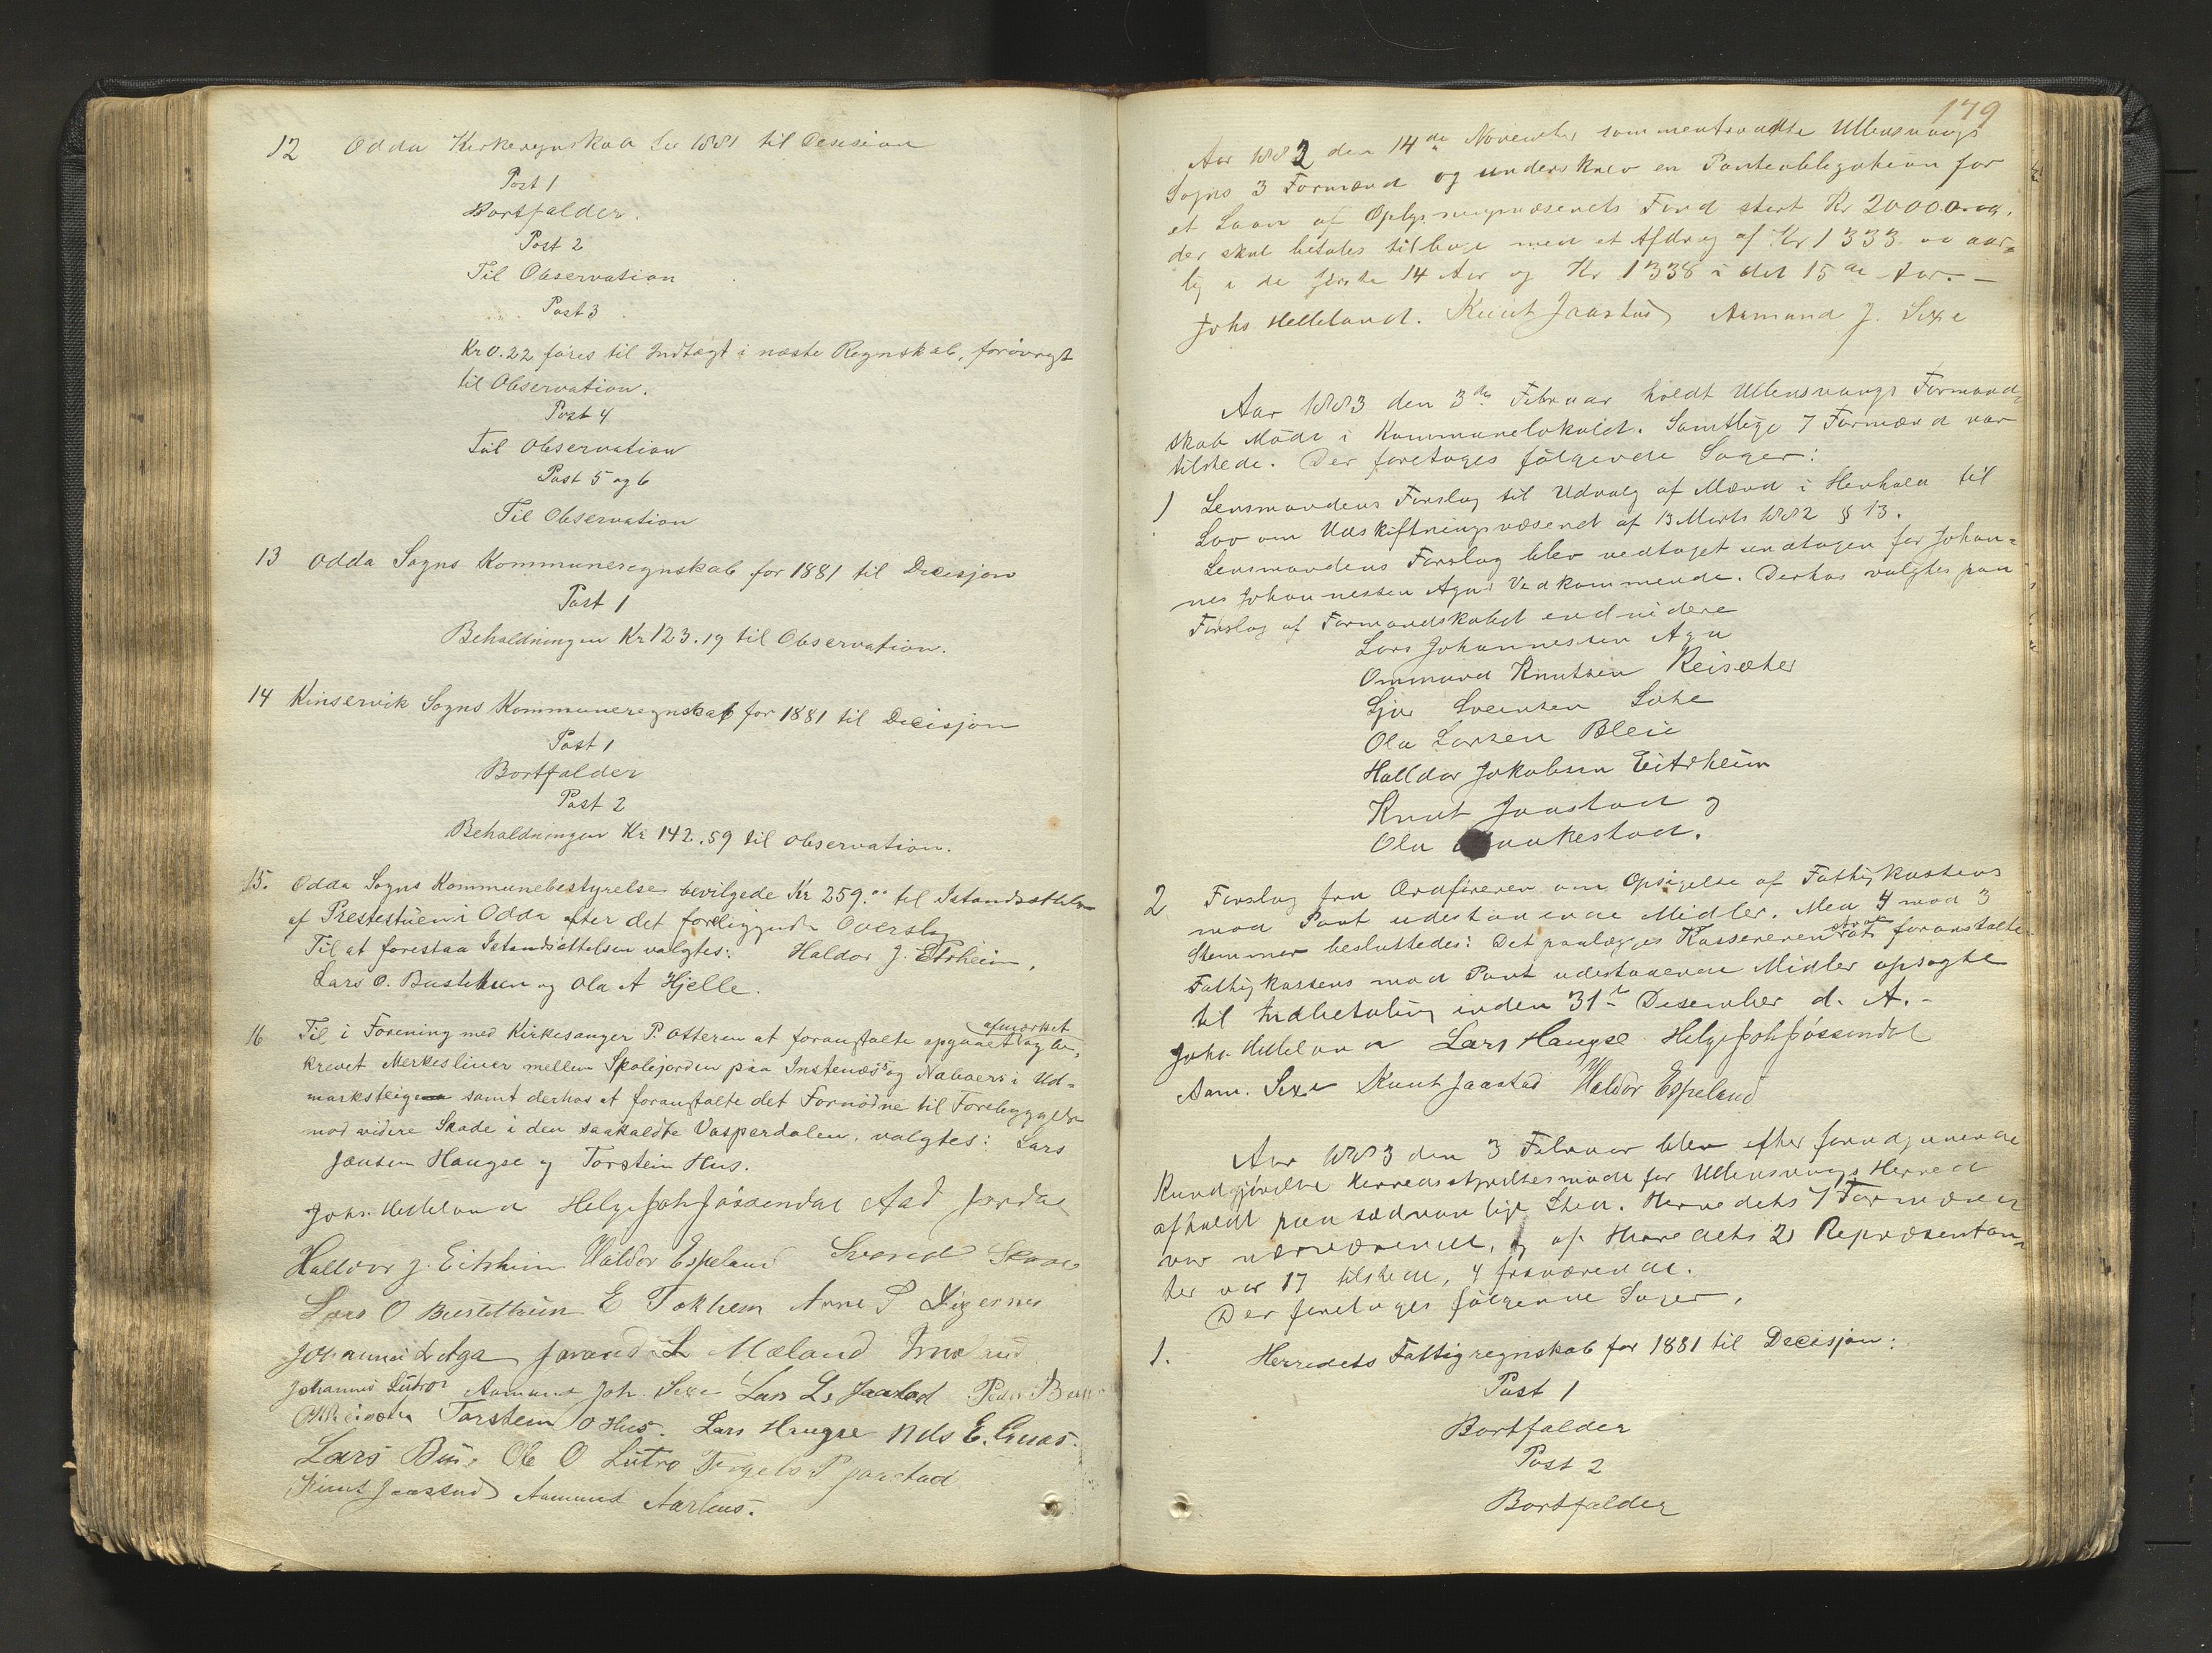 12 Odda Kirkeregnskab for 1881 til Desision
Post 1
Bortfalder.
Post 2
Til Observation
Post 3
Kr 0.22 føres til Indtægt i næste Regnskab, forøvrigt
til Observation.
Post 4
Til Observation
Post 5 og 6
Til Observation
13 Odda Sogns Kommuneregnskab for 1881 til Decisjon
Post 1
Beholdningen Kr 123.19 til Observation.
14 Kinservik Sogns Kommuneregnskab for 1881 til Decisjon
Post 1
Bortfalder
Post 2
Beholdningen Kr 142.59 til Observation.
15. Odda Sogns Kommunebestyrelse bevilgede Kr 259.00 til Istandsættelse
af Prestestuen i Odda efter det foreliggende Overslag
Til at forestaa Istandsættelsen valgtes: Haldor J. Eitrheim,
Lars O. Bustethun og Ola A Hjelle.
16 Til i Forening med Kirkesanger P. Ottersen at foranstalte opgaaet afmærket og be-
krevet Merkesliner mellem Skolejorden paa Instenæs og Naboers i Ud-
marksteigene samt derhos at foranstalte det Fornødne til Forebyggelse
mod videre Skade i den saakaldte Vasperdalen, valgtes: Lars
Jansen Haugse og Torstein Hus.
Johs. Helleland Helge Joh Jøssendal Aad Jordal
Halldor J. Eitrheim Haldor Espeland Svend
Lars O Bustethun E Tokheim Arne P Digernes
Johannes L Aga L Mæland
Johannes Lutro Aamund Joh. Sexe Lars L. Jaastad Peder
Torstein O Hus. Lars Haugse Nils E.
Lars Ole O Lutro Jaastad
Knut Jaastad Aamund Aarhus.
179
Aar 1882 den 14de November sammentraadte Ullensvangs
Sogns 3 Formænd og underskrev en Panteobligation for
et Laan af Oplysningsvæsenets Fond stort Kr 20000.00,
der skal betales tilbage med et Afdrag af Kr 1333.00 aar-
lig i de første 14 Aar og Kr 1338 i det 15de Aar. —
Johs Helleland. Knut Jaastad Aamund J. Sexe
Aar 1883 den 3die Februar holdt Ullensvangs Formand-
skab Møde i Kommunelokalet. Samtlige 7 Formænd var
tilstede. Der foretoges følgende Sager:
1 Lensmandens Forslag til Udvalg af Mænd i Henhold til
Lov om Udskiftningsvæsenet af 13 Marts 1882 § 13.
Lensmandens Forslag blev vedtaget undtagen for Johan-
nes Johannessen Agas Vedkommende. Derhos valgtes paa
Forslag af Formandskabet endvidere
Lars Johannessen Aga
Ommund Knutsen Reisæter
Sjur Sveinsen Sexe
Ola Larsen Bleie
Halldor Jakobsen Eitrheim
Knut Jaastad og
Ola Kraakestad.
2 Forslag fra Ordføreren om Opsigelse af Fattigkassens
mod Pant udestaaende Midler. Med 4 mod 3
Stemmer besluttedes: Det paalægges Kassereren strax foranstalte
Fattigkassens mod Pant udestaaende Midler opsagte
til Indbetaling inden 31te Desember d. A. -
Johs Helleland Lars Haugse Helge Joh Jøssendal
Aam. Sexe Knut Jaastad Haldor Espeland
Aar 1883 den 3 Februar blev efter forudgaaende
Kundgjørelse Herredsstyrelsesmøde for Ullensvangs Herred
afholdt paa sædvanlige Sted. Herredets 7 Formænd
var nærværende, og af Herredets 21 Repræsentan-
ter var 17 tilstede, 4 fraværende.
Der foretoges følgende Sager.
1. Herredets Fattigregnskab for 1881 til Decisjon:
Post 1
Bortfalder
Post 2
Bortfalder